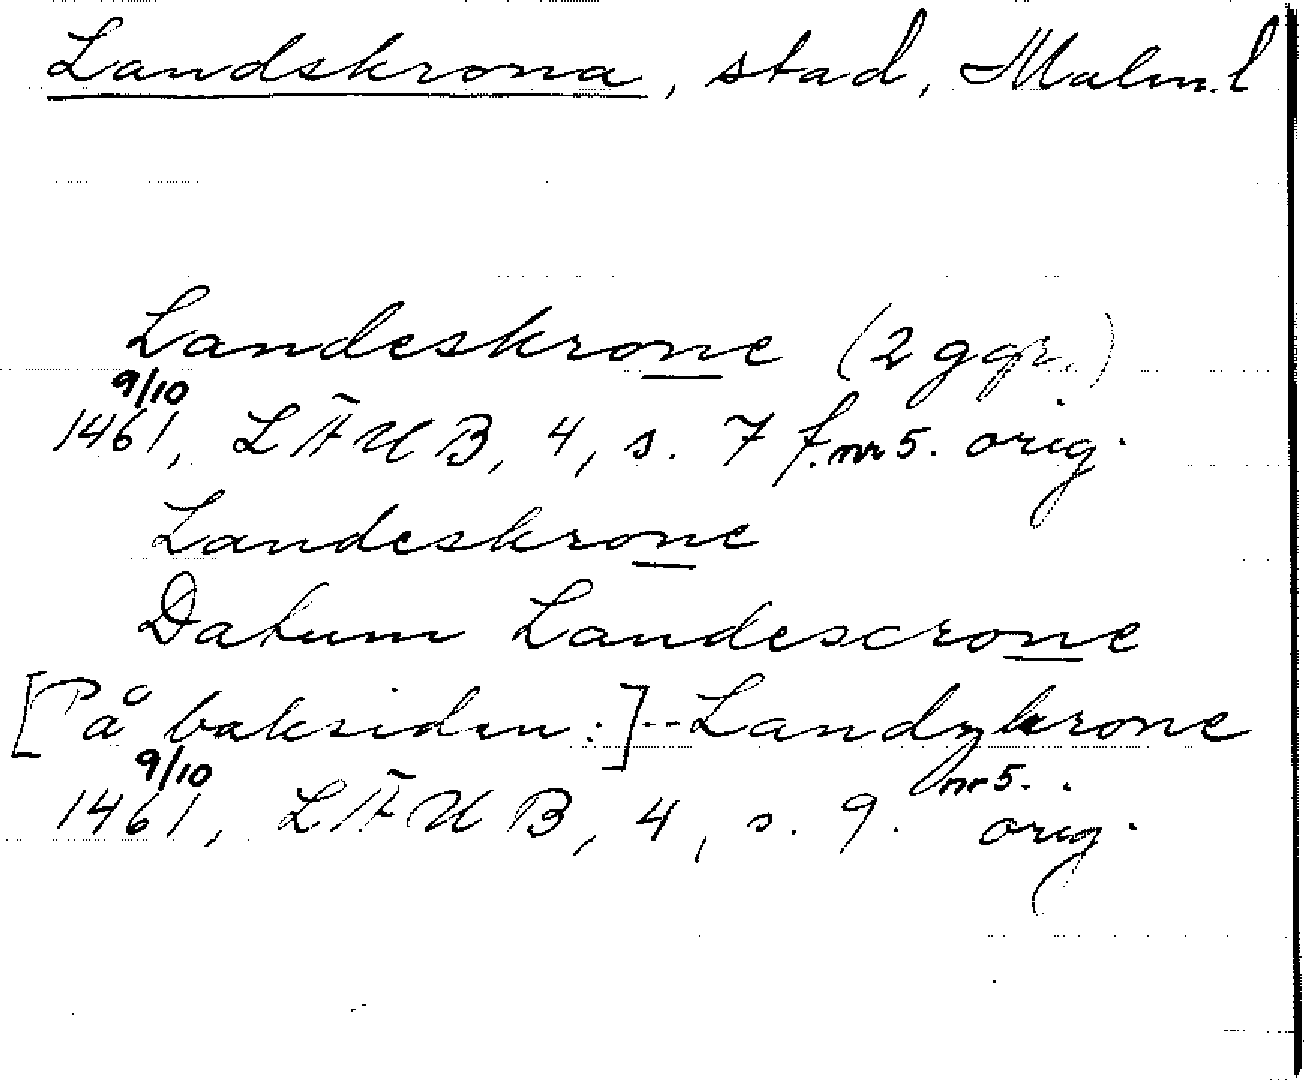 Landskrona, stad, Malm.l
Landeskrone (2 ggr.)
9/10
1461, LÄUB, 4, s. 7 f. nr 5. orig.
Landeskrone
Datum Landescrone
[På baksidan:] -- Landzkrone
9/10
1461, LÄUB, 4, s. 9. nr 5. orig.